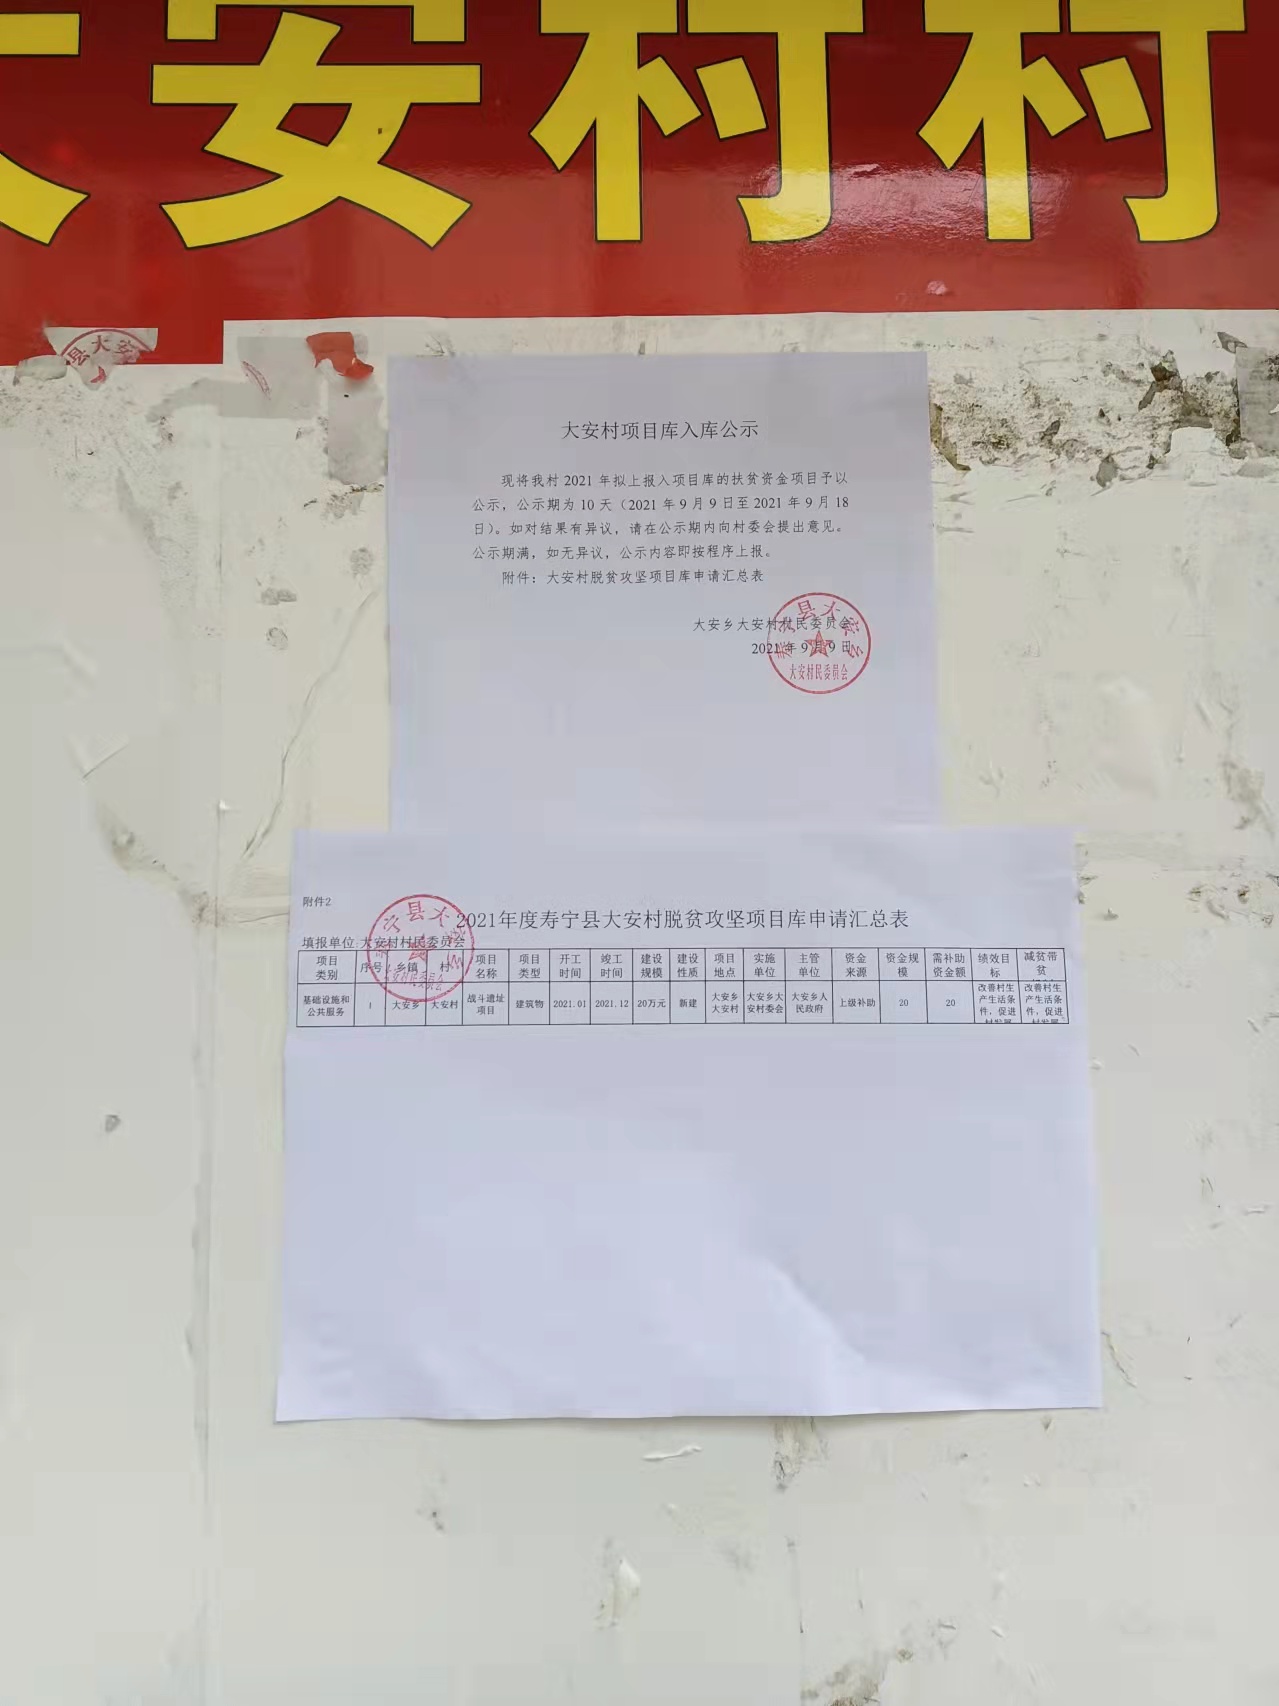 安村村
县大安
大安村项目库入库公示
现将我村 2021 年拟上报入项目库的扶贫资金项目予以
公示，公示期为 10 天（2021 年 9 月 9 日至 2021 年 9 月 18
日）。如对结果有异议，请在公示期内向村委会提出意见。
公示期满，如无异议，公示内容即按程序上报。
附件：大安村脱贫攻坚项目库申请汇总表
大安乡大安村村民委员会
2021 年 9 月 9 日
寿宁县大安乡
大安村民委员会
附件2
2021年度寿宁县大安村脱贫攻坚项目库申请汇总表
填报单位:大安村村民委员会
项目类别 序号 乡镇 村 项目名称 项目类型 开工时间 竣工时间 建设规模 建设性质 项目地点 实施单位 主管单位 资金来源 资金规模 需补助资金额 绩效目标 减贫带贫
基础设施和公共服务 1 大安乡 大安村 战斗遗址项目 建筑物 2021.01 2021.12 20万元 新建 大安乡大安村 大安乡大安村委会 大安乡人民政府 上级补助 20 20 改善村生产生活条件，促进 改善村生产生活条件，促进